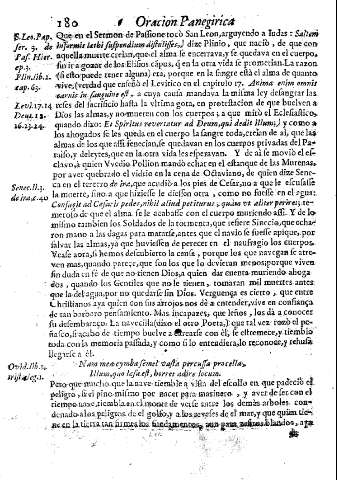 180 Oracion Panegirica
S. Leo. Pap.
ser. 3. de
Pas.
ep. 3.
Plin. lib. 2.
cap. 63.
Levi. 17. 14
Deut. 12.
16. 23. 24.
Senec. li. 3.
de ira, c. 40
Ovid. lib. 2.
trist. eleg. 1.
Que en el Sermon de Passione tocò San Leon, arguyendo a Iudas: Saltem
informis lethi suspendium distulisses, dize Plinio, que naciò, de que con
aquella muerte creìan, que el alma se encerrava, y se quedava en el cuerpo,
sin ir a gozar de los Elisios cãpos, q̃ en la otra vida se prometian. La razon
(si esto puede tener alguna) era, porque en la sangre està el alma de quanto
vive, (verdad que enseñò el Levitico en el capitulo 17. Anima enim omnis
carnis in sanguine est: a cuya causa mandava la misma ley desangrar las
reses del sacrificio hasta la vltima gota, en protestacion de que buelven a
Dios las almas, y no mueren con los cuerpos: a que mirò el Eclesiastès,
quando dixo: Et Spiritus revertatur ad Deum, qui dedit illum,) y como a
los ahogados se les queda en el cuerpo la sangre toda, creìan de aì, que las
almas de los que assi fenecian, se quedavan en los cuerpos privadas del Pa-
raiso, y deleytes, que en la otra vida les esperavan. Y de aì se moviò el es-
clavo, à quien Vvedio Pollion mandò echar en el estanque de las Murenas,
por aver quebrado el vidrio en la cena de Octaviano, de quien dize Sene-
ca en el tercero de ira, que acudiò a los pies de Cesar, no a que le escusasse
la muerte, sino a que hiziesse le diessen otra, como no fuesse en el agua:
Confugit ad Cæsaris pedes, nihil aliud petiturus, quàm vt aliter periret; te-
meroso de que el alma se le acabasse con el cuerpo muriendo assi. Y de lo
mismo tambien los Soldados de la tormenta, que refiere Sinecio, que echa-
ron mano a las dagas para matarse, antes que el navio se fuesse apique, por
salvar las almas, ya que huviessen de perecer en el naufragio los cuerpos.
Vease aora, si hemos descubierto la causa, porque los que navegan se atre-
ven mas, quando parece, que son los que lo devieran menos: porque viven
sin duda en fè de que no tienen Dios, a quien dar cuenta muriendo ahoga-
dos, quando los Gentiles que no le tienen, tomaràn mil muertes antes
que la del agua, por no quedarse sin Dios. Verguença es cierto, que entre
Christianos aya quien con sus arrojos nos dè a entender, vive en confiança
de tan borboro pensamiento. Mas incapazes, que leños, los dà a conocer
su desembaraço. La navecilla (dixo el otro Poeta,) que tal vez tocò el pe-
ñasco, si acaso de tiempo buelve à encararse con èl, se estremece, y tiembla
toda con la memoria passada, y como si lo entendiera, lo reconoce, y rehusa
llegarse a èl.
Nam mea cymba semel vasta percussa procella,
Illum, quo læsa est, horret adire locum.
Pero què mucho que la nave tiemble a vista del escollo en que padeciò el
peligro, si el pino mismo por nacer para marinero, y aver de ser con el
tiempo nave, tiembla en el monte de verse entre los demàs arboles con-
denado a los peligros de el golfo, y a los reveses de el mar, y que quiun tie-
ne en la tierra tan firmes los fundamentos, aun para soplos blandos, aya